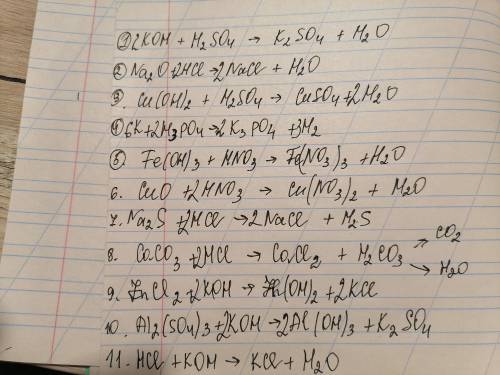 ① 2KOH + H₂SO₄ → K₂SO₄ + H₂O
② Na₂O+2HCl→2NaCl + H₂O
③. Cu(OH)₂ + H₂SO₄ → CuSO₄+2H₂O
④ 6K+2H₃PO₄→2K₃PO₄ +3H₂
⑤ Fe(OH)₃ + HNO₃ → Fe(NO₃)₃ +H₂O
6. CuO +2HNO₃ → Cu(NO₃)₂ + H₂O
7. Na₂S +2HCl →2NaCl + H₂S
8. CaCO₃ +2HCl → CaCl₂ + H₂CO₃ → CO₂ → H₂O
9. ZnCl₂+2KOH→ Zn(OH)₂ +2KCl
10. Al₂(SO₄)₃+2KOH→2Al(OH)₃ + K₂SO₄
11. HCl +KOH → KCl + H₂O